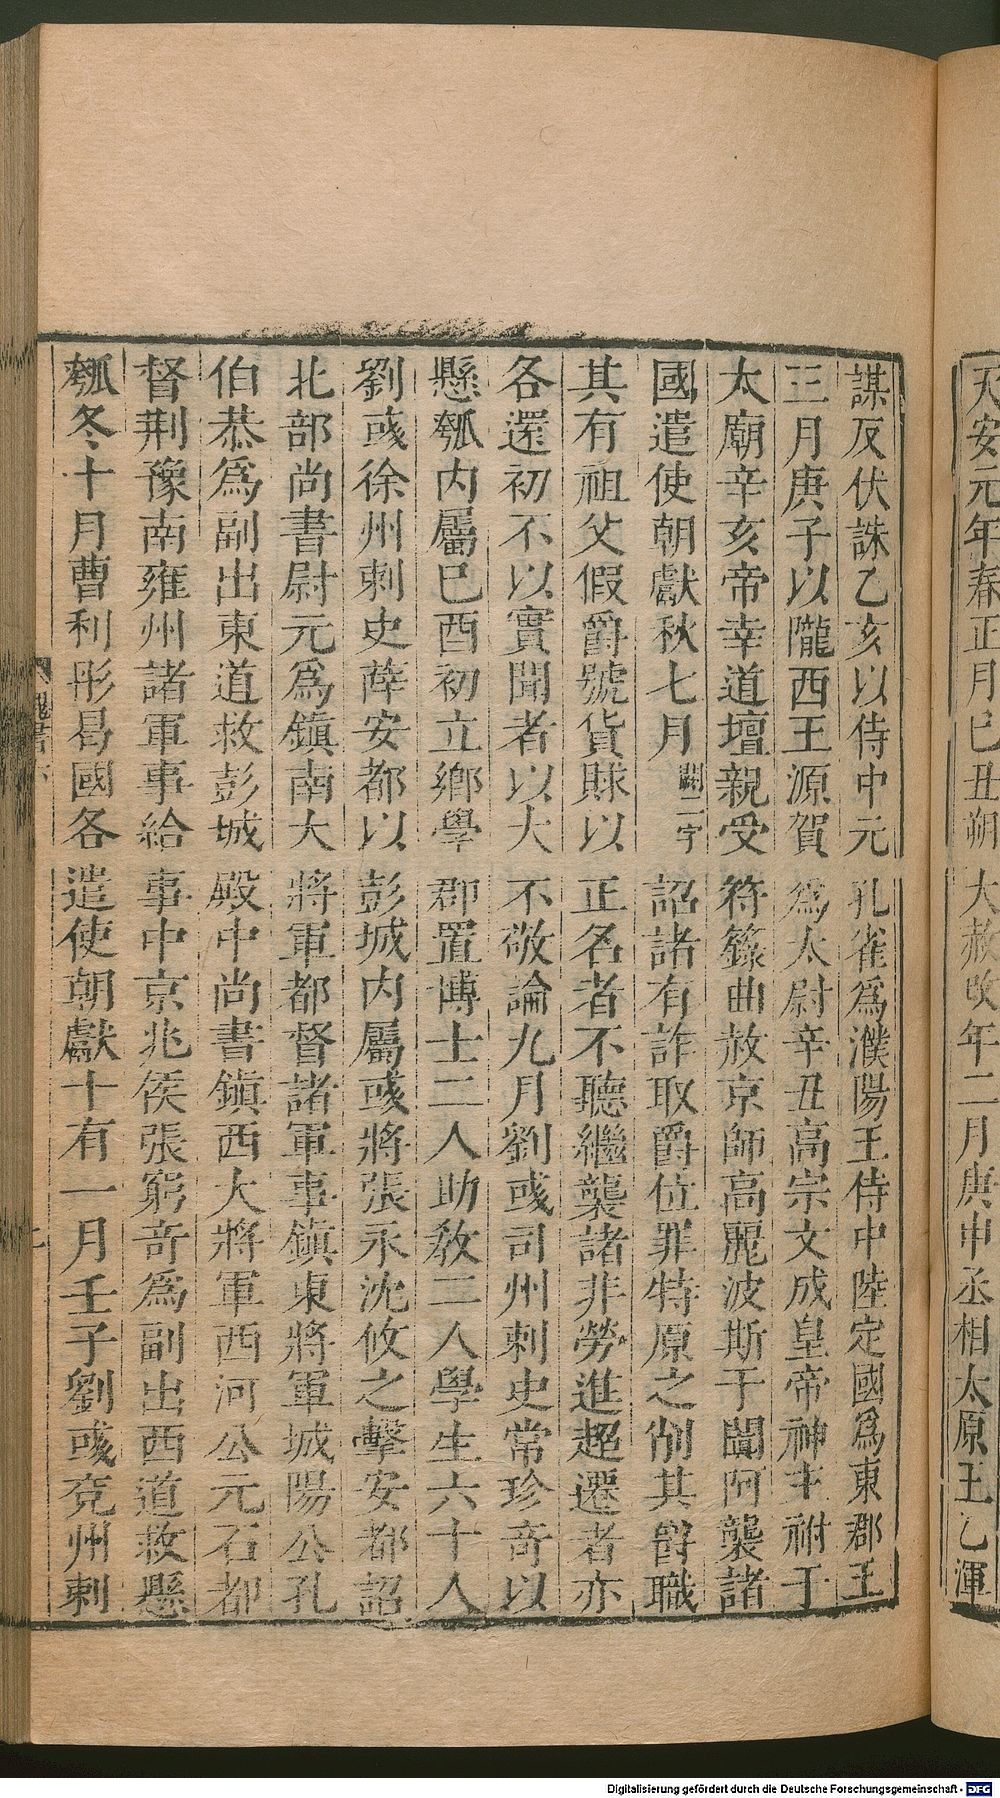 天安元年春正月已丑朔大赦改年二月庚申丞相太原王乙渾
謀反伏誅乙亥以侍中元孔雀爲濮陽王侍中陸定國爲東郡王
三月庚子以隴西王源賀爲太尉辛丑高宗文成皇帝神主祔于
太廟辛亥帝幸道壇親受符籙曲赦京師高麗波斯于闐阿襲諸
國遣使朝獻秋七月闕二字詔諸有詐取爵位罪特原之削其爵職
其有祖父假爵號貨賕以正名者不聽繼襲諸非勞進超遷者亦
各還初不以實聞者以大不敬論九月劉彧司州刺史常珍奇以
懸瓠内屬巳酉初立鄉學郡置博士二人助教二人學生六十人
劉彧徐州刺史薛安都以彭城内屬彧將張永沈攸之擊安都詔
北部尚書尉元爲鎮南大將軍都督諸軍事鎮東將軍城陽公孔
伯恭爲副出東道救彭城殿中尚書鎮西大將軍西河公元石都
督荆豫南雍州諸軍事給事中京兆侯張窮奇爲副出西道救懸
瓠冬十月曹利彤曷國各遣使朝獻十有一月壬子劉彧兖州刺
魏書六